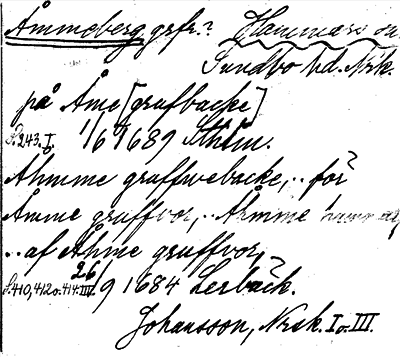 Åmmeberg grfr.? Hammars sn
Sundbo hd. Nrk.
på Åme [grufbacke]
S. 243. I. 1/6 1689 Sthlm.
Åhmme gruffwebacke, .. för
Åmme gruffvor, .. Åhmme
.. af Åhme gruffvor,
S. 410, 412 o. 414. III. 26/9 1684 Lerbäck.
Johansson, Nrsk. I o. III.